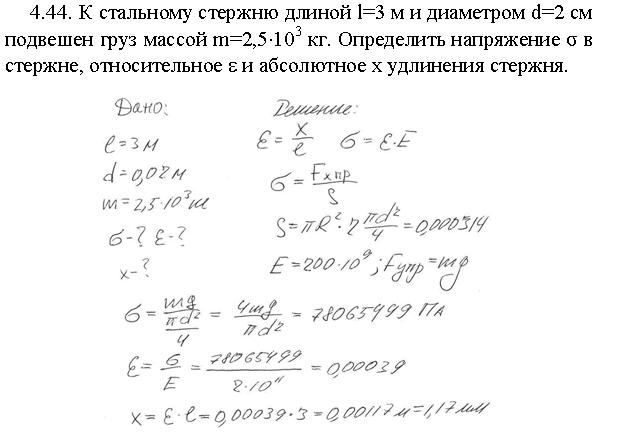 4.44. К стальному стержню длиной l=3 м и диаметром d=2 см
подвешен груз массой m=2,5·10³ кг. Определить напряжение σ в
стержне, относительное ε и абсолютное x удлинения стержня.
Дано: Решение:
l=3м ε=x/l σ=ε·E
d=0,02м σ=Fупр/S
m=2,5·10³кг S=πR²=πd²/4=0,000314
σ-? ε-?
x-? E=200·10⁹; Fупр=mg
σ=mg/(πd²/4)=4mg/πd²=78065499 Па
ε=σ/E=78065499/2·10¹¹=0,00039
x=ε·l=0,00039·3=0,00117м=1,17мм